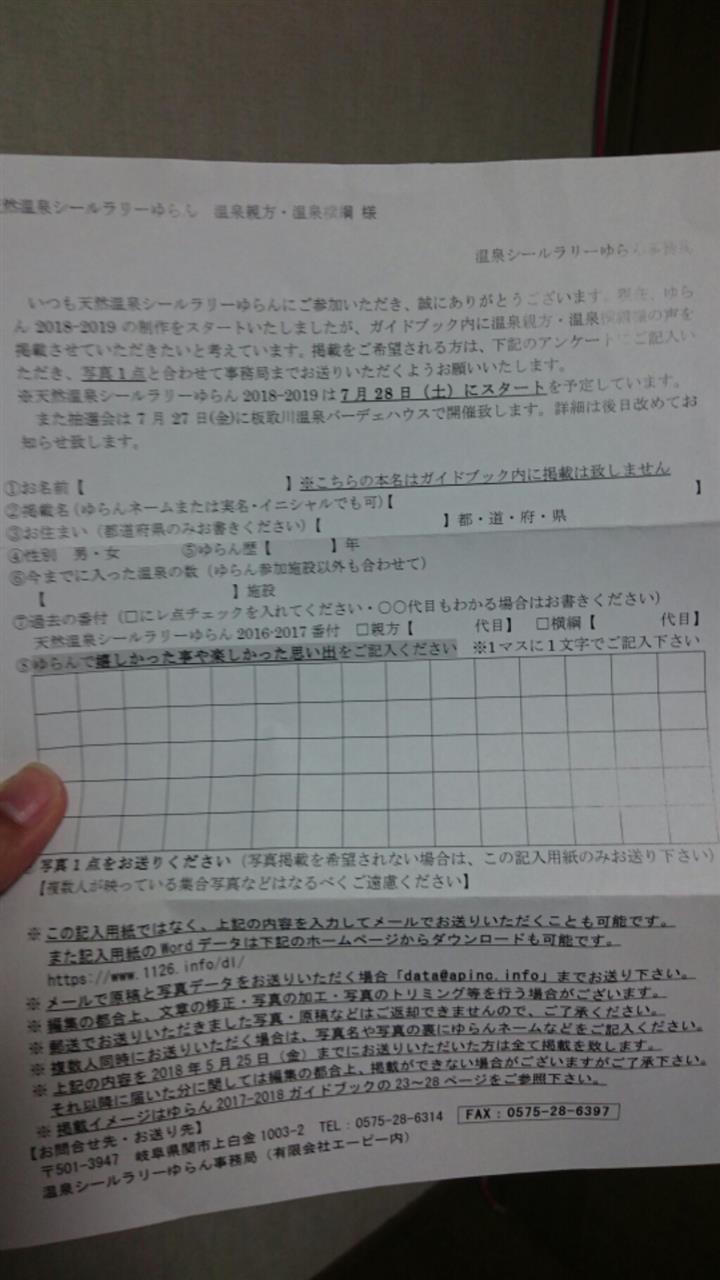 然温泉シールラリーゆらん 温泉親方・温泉横綱 様
温泉シールラリーゆらん事務局
いつも天然温泉シールラリーゆらんにご参加いただき、誠にありがとうございます。現在、ゆら
ん 2018-2019 の制作をスタートいたしましたが、ガイドブック内に温泉親方・温泉横綱様の声を
掲載させていただきたいと考えています。掲載をご希望される方は、下記のアンケートにご記入い
ただき、写真1点と合わせて事務局までお送りいただくようお願いいたします。
※天然温泉シールラリーゆらん 2018-2019 は 7月28日(土)にスタートを予定しています。
また抽選会は7月27日(金)に板取川温泉バーデェハウスで開催致します。詳細は後日改めてお
知らせ致します。
①お名前【 】※こちらの本名はガイドブック内に掲載は致しません
②掲載名(ゆらんネームまたは実名・イニシャルでも可)【 】
③お住まい(都道府県のみお書きください)【 】都・道・府・県
④性別 男・女 ⑤ゆらん歴【 】年
⑥今までに入った温泉の数(ゆらん参加施設以外も合わせて)
【 】施設
⑦過去の番付(□にレ点チェックを入れてください・○○代目もわかる場合はお書きください)
天然温泉シールラリーゆらん 2016-2017 番付 □親方【 代目】 □横綱【 代目】
⑧ゆらんで嬉しかった事や楽しかった思い出をご記入ください ※1マスに1文字でご記入下さい
写真1点をお送りください(写真掲載を希望されない場合は、この記入用紙のみお送り下さい)
【複数人が映っている集合写真などはなるべくご遠慮ください】
※この記入用紙ではなく、上記の内容を入力してメールでお送りいただくことも可能です。
また記入用紙のWordデータは下記のホームページからダウンロードも可能です。
https://www.1126.info/dl/
※メールで原稿と写真データをお送りいただく場合「data@apinc.info」までお送り下さい。
※編集の都合上、文章の修正・写真の加工・写真のトリミング等を行う場合がございます。
※郵送でお送りいただきました写真・原稿などはご返却できませんので、ご了承ください。
※複数人同時にお送りいただく場合は、写真名や写真の裏にゆらんネームなどをご記入ください。
※上記の内容を2018年5月25日(金)までにお送りいただいた方は全て掲載を致します。
それ以降に届いた分に関しては編集の都合上、掲載ができない場合がございますがご了承下さい。
※掲載イメージはゆらん2017-2018ガイドブックの23~28ページをご参照下さい。
【お問合せ先・お送り先】
〒501-3947 岐阜県関市上白金1003-2 TEL:0575-28-6314 FAX:0575-28-6397
温泉シールラリーゆらん事務局(有限会社エーピー内)